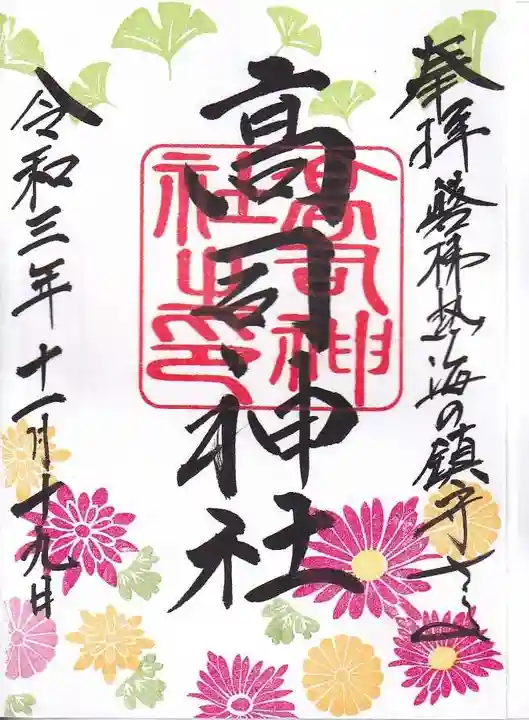 奉拝 磐梯熱海の鎮守さま
高司神社
高司神社之印
令和三年十一月十九日